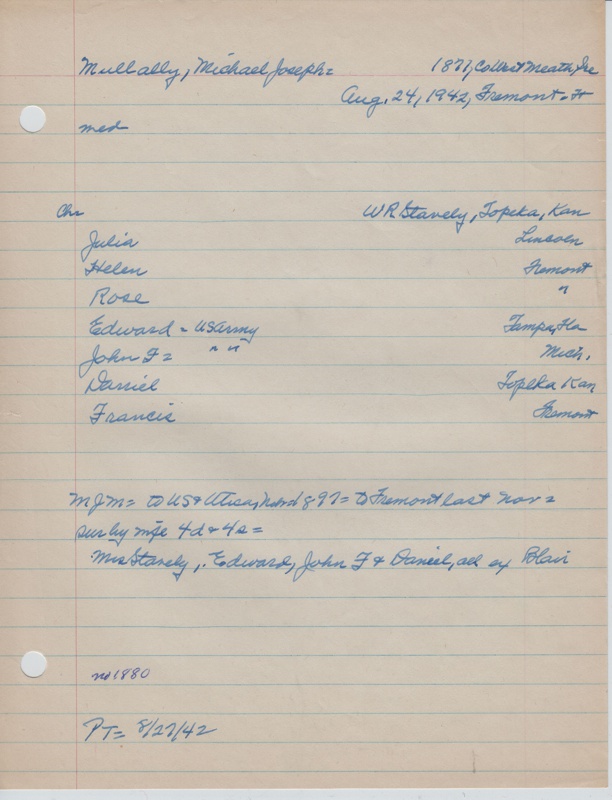 Mullally, Michael Joseph= 1877, Co West Meath, Ire
Aug. 24, 1942, Fremont-
med
Chr W R Stavely, Topeka, Kan
Julia Lincoln
Helen Fremont
Rose "
Edward - US Army Tampa, Fla
John F= " " Mich.
Daniel Topeka Kan
Francis Fremont
MJM= to US & Utica, 1897= to Fremont last Nov=
sur by wife 4d & 4s=
Mrs Stavely, Edward, John F & Daniel, all ex Blair
no 1880
PT= 8/27/42